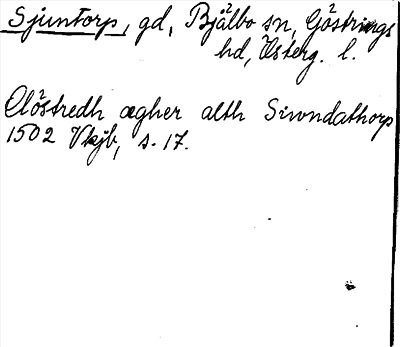 Sjuntorp, gd, Bjälbo sn, Göstrings
hd, Österg. l.
Clöstredh ægher alth Siwndathorp
1502 Vkjb, s. 17.